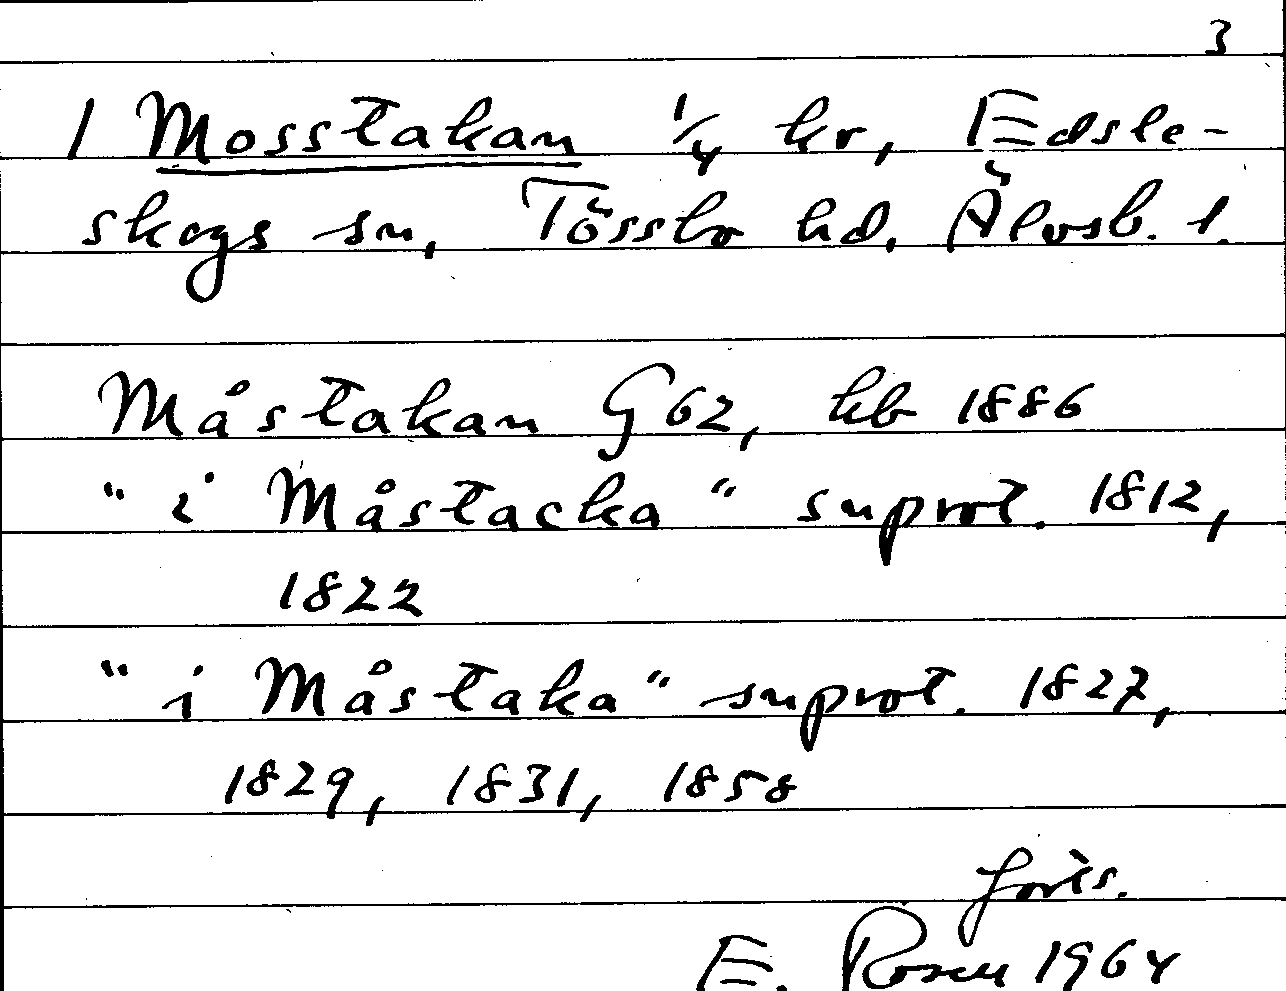 3
1 Mosstakan 1/4 kr, Edsle-
skogs sn, Tössbo hd. Älvsb. l.
Måstakan G 62, kb 1886
"i Måstacka" snprot. 1812,
1822
"i Måstaka" snprot. 1827,
1829, 1831, 1858
forts.
E. Rosen 1964